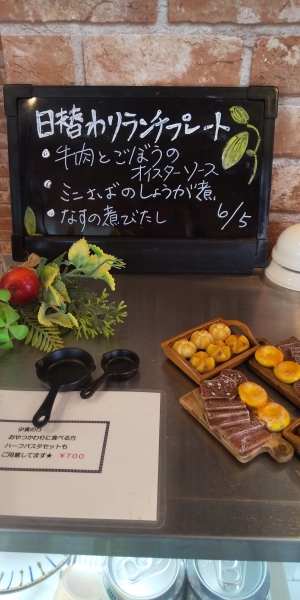 日替わりランチプレート
• 牛肉とごぼうの
オイスターソース
• ミニさばのしょうが煮
• なすの煮びたし
6/5
少食の方
おやつかわりに食べる方
ハーフパスタセットも
ご用意してます★ ￥700